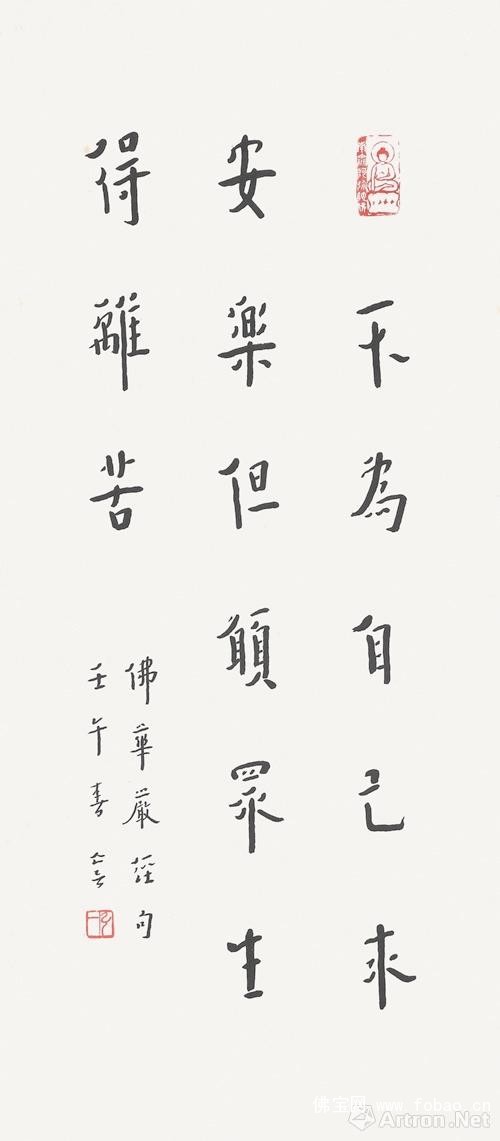 不為自己求
安樂但願眾生
得離苦
佛華嚴經句
壬午
佛宝网 www.fobao.cn
Artron.Net